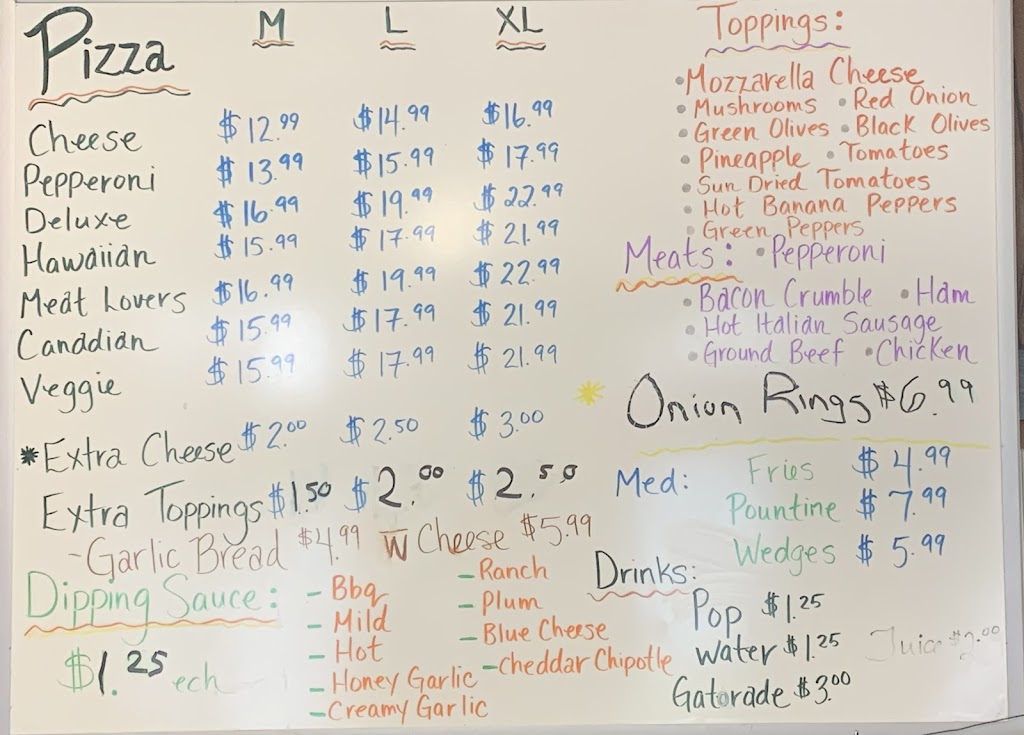 Pizza M L XL
Cheese $12.99 $14.99 $16.99
Pepperoni $13.99 $15.99 $17.99
Deluxe $16.99 $19.99 $22.99
Hawaiian $15.99 $17.99 $21.99
Meat Lovers $16.99 $19.99 $22.99
Canadian $15.99 $17.99 $21.99
Veggie $15.99 $17.99 $21.99
*Extra Cheese $2.00 $2.50 $3.00
Extra Toppings $1.50 $2.00 $2.50
-Garlic Bread $4.99 W Cheese $5.99
Dipping Sauce:
$1.25 ech
- Bbq
- Mild
- Hot
- Honey Garlic
- Creamy Garlic
- Ranch
- Plum
- Blue Cheese
- Cheddar Chipotle
Toppings:
• Mozzarella Cheese
• Mushrooms • Red Onion
• Green Olives • Black Olives
• Pineapple • Tomatoes
• Sun Dried Tomatoes
• Hot Banana Peppers
• Green Peppers
Meats: • Pepperoni
• Bacon Crumble • Ham
• Hot Italian Sausage
• Ground Beef • Chicken
Onion Rings $6.99
Med: Fries $4.99
Pountine $7.99
Wedges $5.99
Drinks:
Pop $1.25
Water $1.25 Juice $2.00
Gatorade $3.00